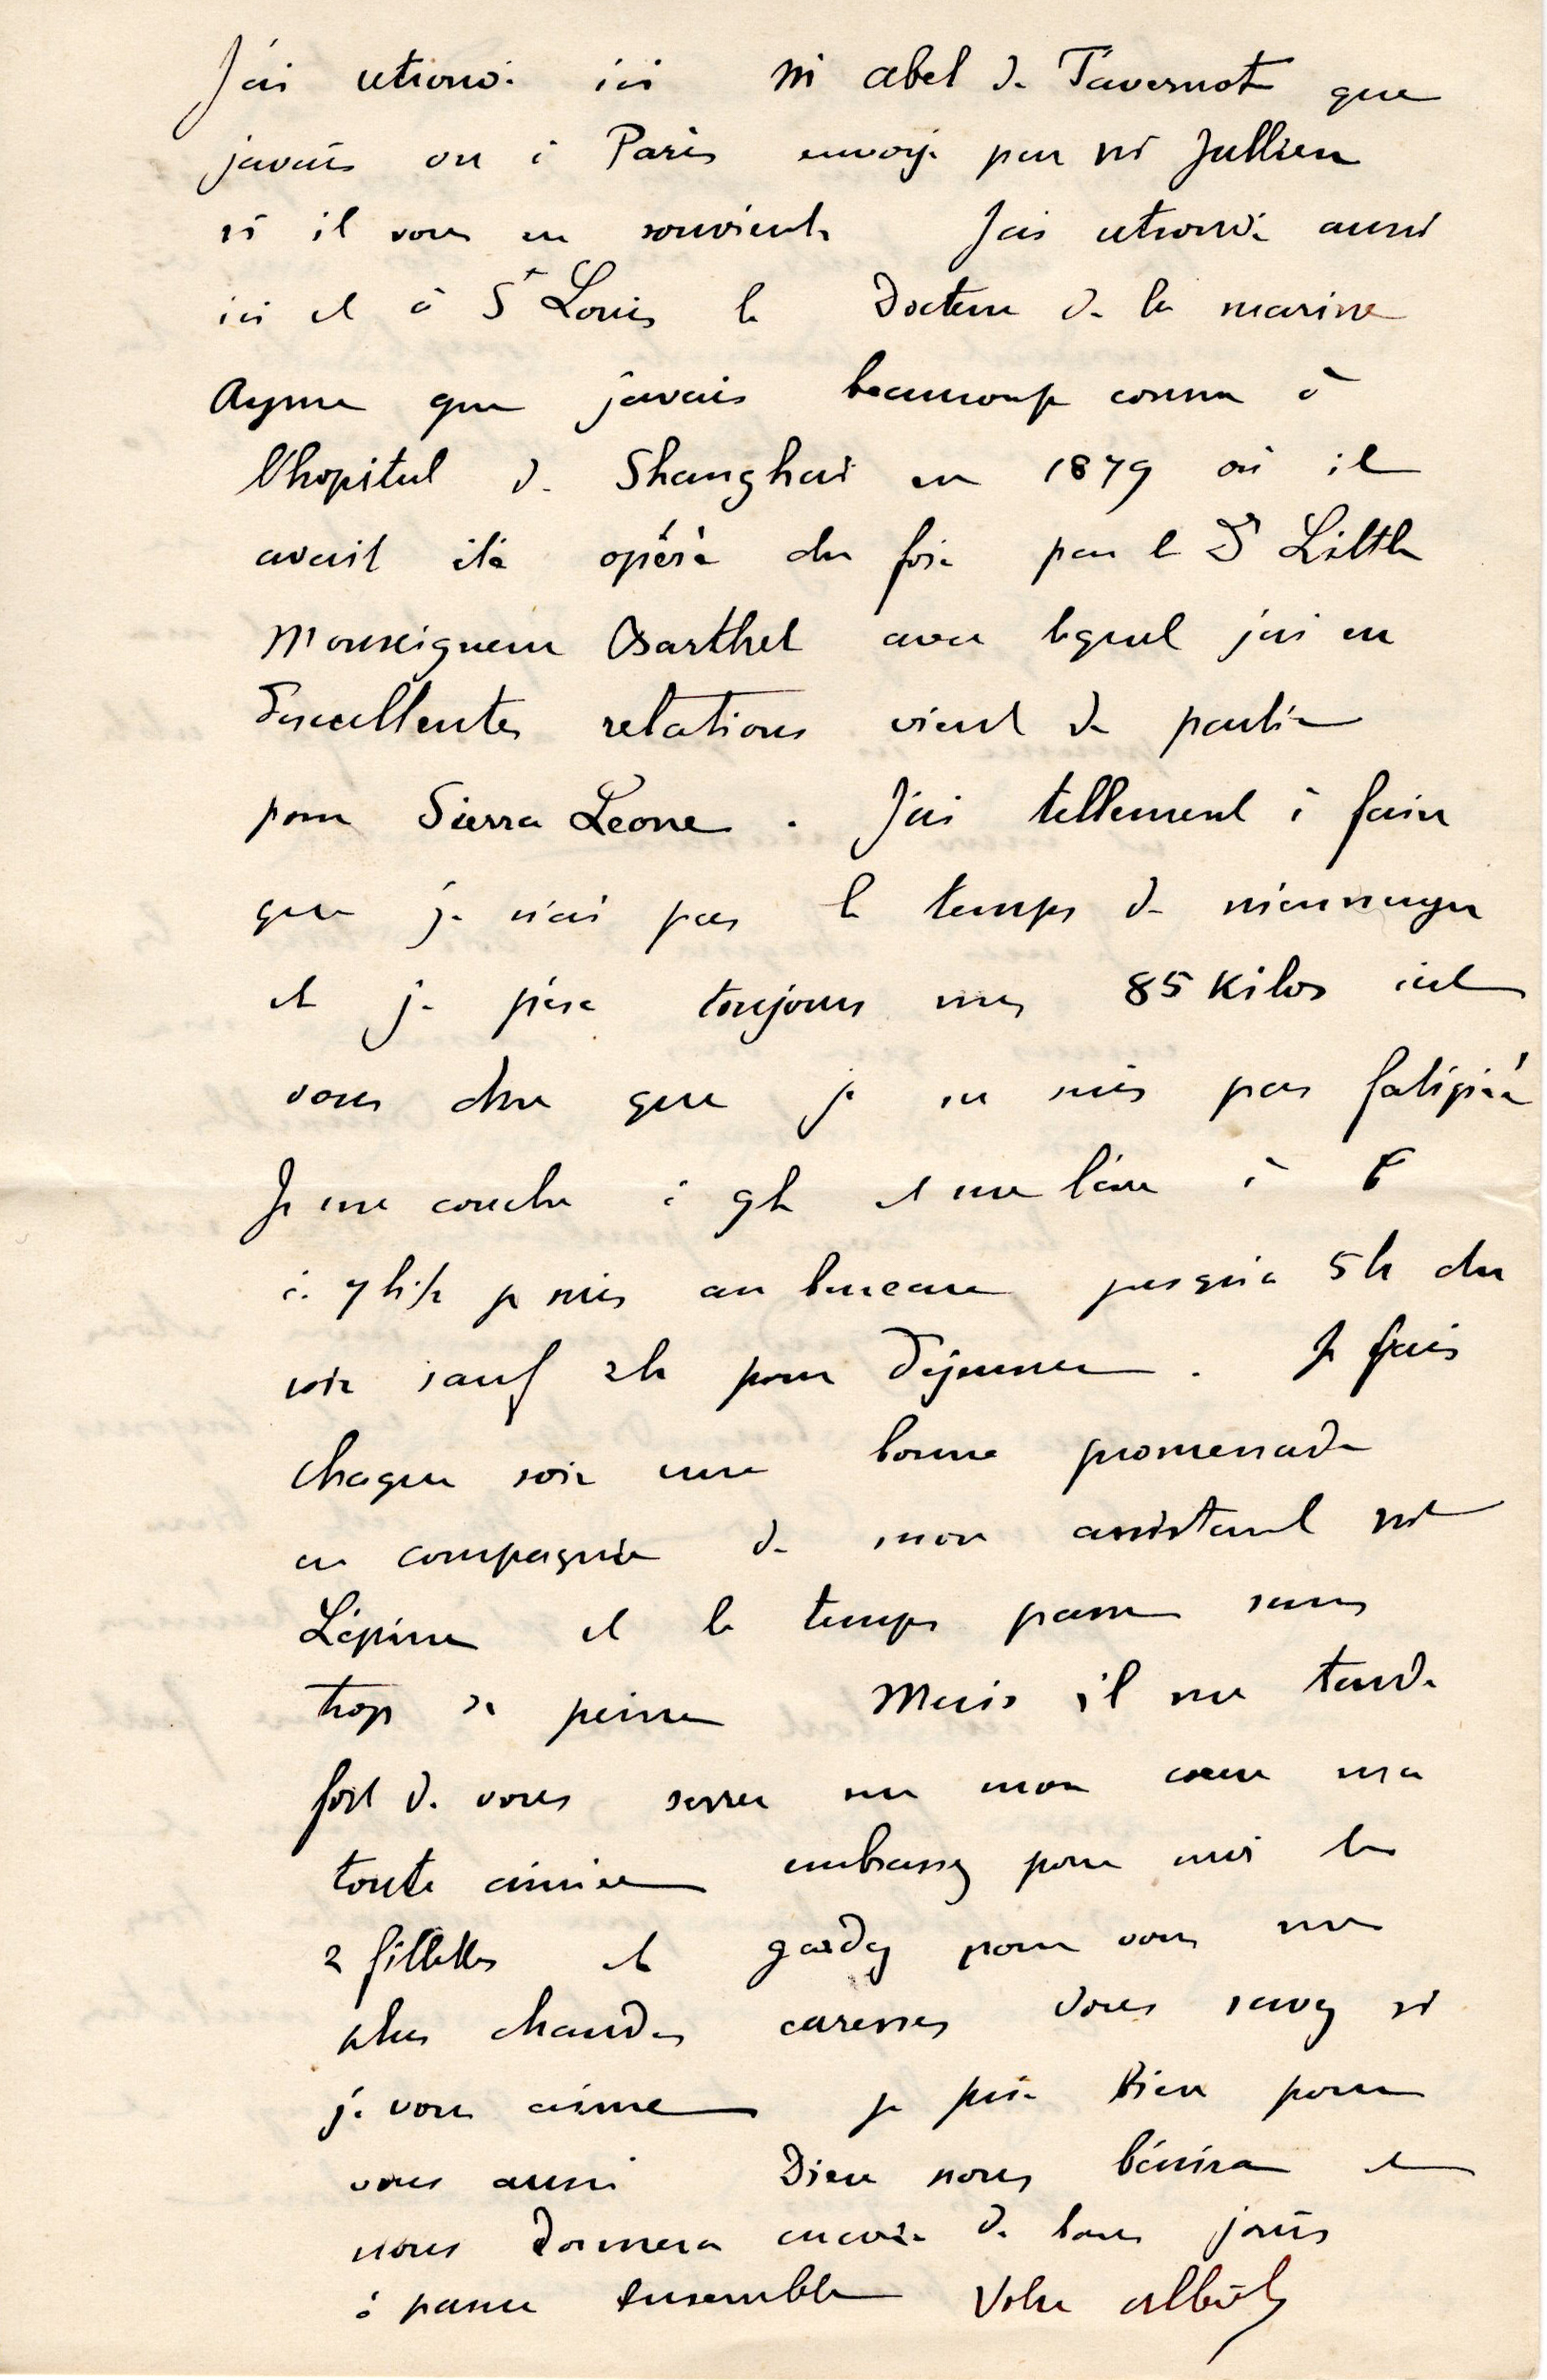 J'ai retrouvé ici Mr Abel de Tavernost que
j'avais vu à Paris envoyé par Mr Jullien
si il vous en souvient J'ai retrouvé aussi
ici et à St Louis le Docteur de la marine
Ayme que j'avais beaucoup connu à
l'hopital de Shanghai en 1879 où il
avait été opéré du foie par le Dr Little
Monseigneur Barthet avec lequel j'ai eu
d'excellentes relations vient de partir
pour Sierra Leone. J'ai tellement à faire
que je n'ai pas le temps de m'ennuyer
et je pèse toujours mes 85 Kilos c'est
vous dire que je ne suis pas fatigué
Je me couche à 9h et me lève à 6
à 7h1/2 je suis au bureau jusqu'à 5h du
soir sauf 2h pour déjeuner. Je fais
chaque soir une bonne promenade
en compagnie de mon assistant Mr
Lépine et le temps passe sans
trop de peine Mais il me tarde
fort de vous serrer sur mon coeur ma
toute aimée embrassez pour moi les
2 fillettes et gardez pour vous mes
plus chaudes caresses Vous savez si
je vous aime je prie Dieu pour
vous aussi Dieu nous bénira et
nous donnera encore de bons jours
à passer ensemble Votre Albert